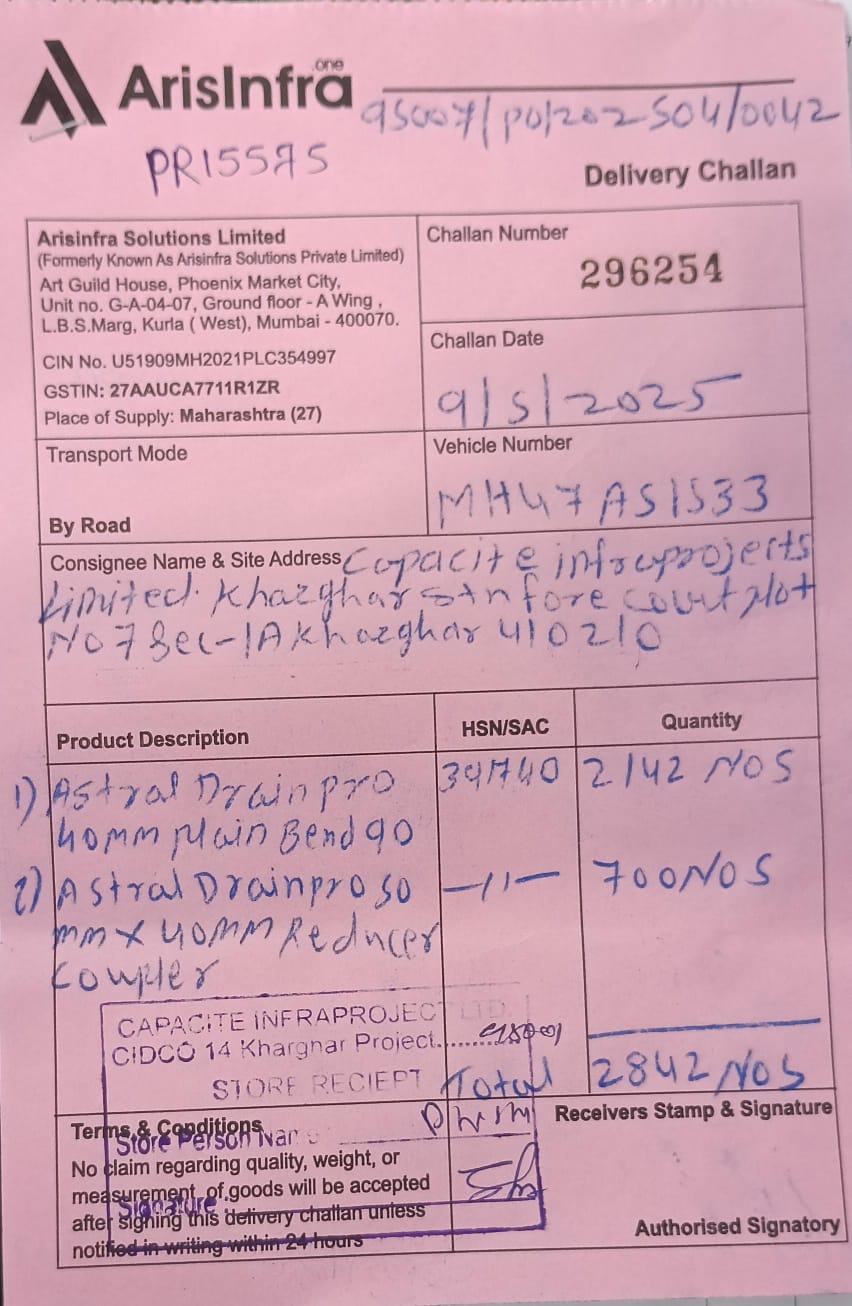 ArisInfra.one
95007/PO/202504/0042
PR15575
Delivery Challan
Arisinfra Solutions Limited
(Formerly Known As Arisinfra Solutions Private Limited)
Art Guild House, Phoenix Market City,
Unit no. G-A-04-07, Ground floor - A Wing ,
L.B.S.Marg, Kurla ( West), Mumbai - 400070.
CIN No. U51909MH2021PLC354997
GSTIN: 27AAUCA7711R1ZR
Place of Supply: Maharashtra (27)
Challan Number
296254
Challan Date
9/5/2025
Transport Mode
By Road
Vehicle Number
MH47AS1533
Consignee Name & Site Address Capacite infraprojects
Limited. Kharghar Stn fore court plot
No 7 Sec-1A Kharghar 410210
Product Description HSN/SAC Quantity
1) Astral Drainpro 391740 2142 NOS
40mm plain Bend 90
2) Astral Drainpro 50 -11- 700 NOS
mm x 40mm Reducer
Coupler
CAPACITE INFRAPROJECT LTD.
CIDCO 14 Kharghar Project
STORE RECIEPT
Total 2842 NOS
Terms & Conditions
Store Person Name
No claim regarding quality, weight, or
measurement of goods will be accepted
Signature
after signing this delivery challan unless
notified in writing within 24 hours
Receivers Stamp & Signature
Authorised Signatory